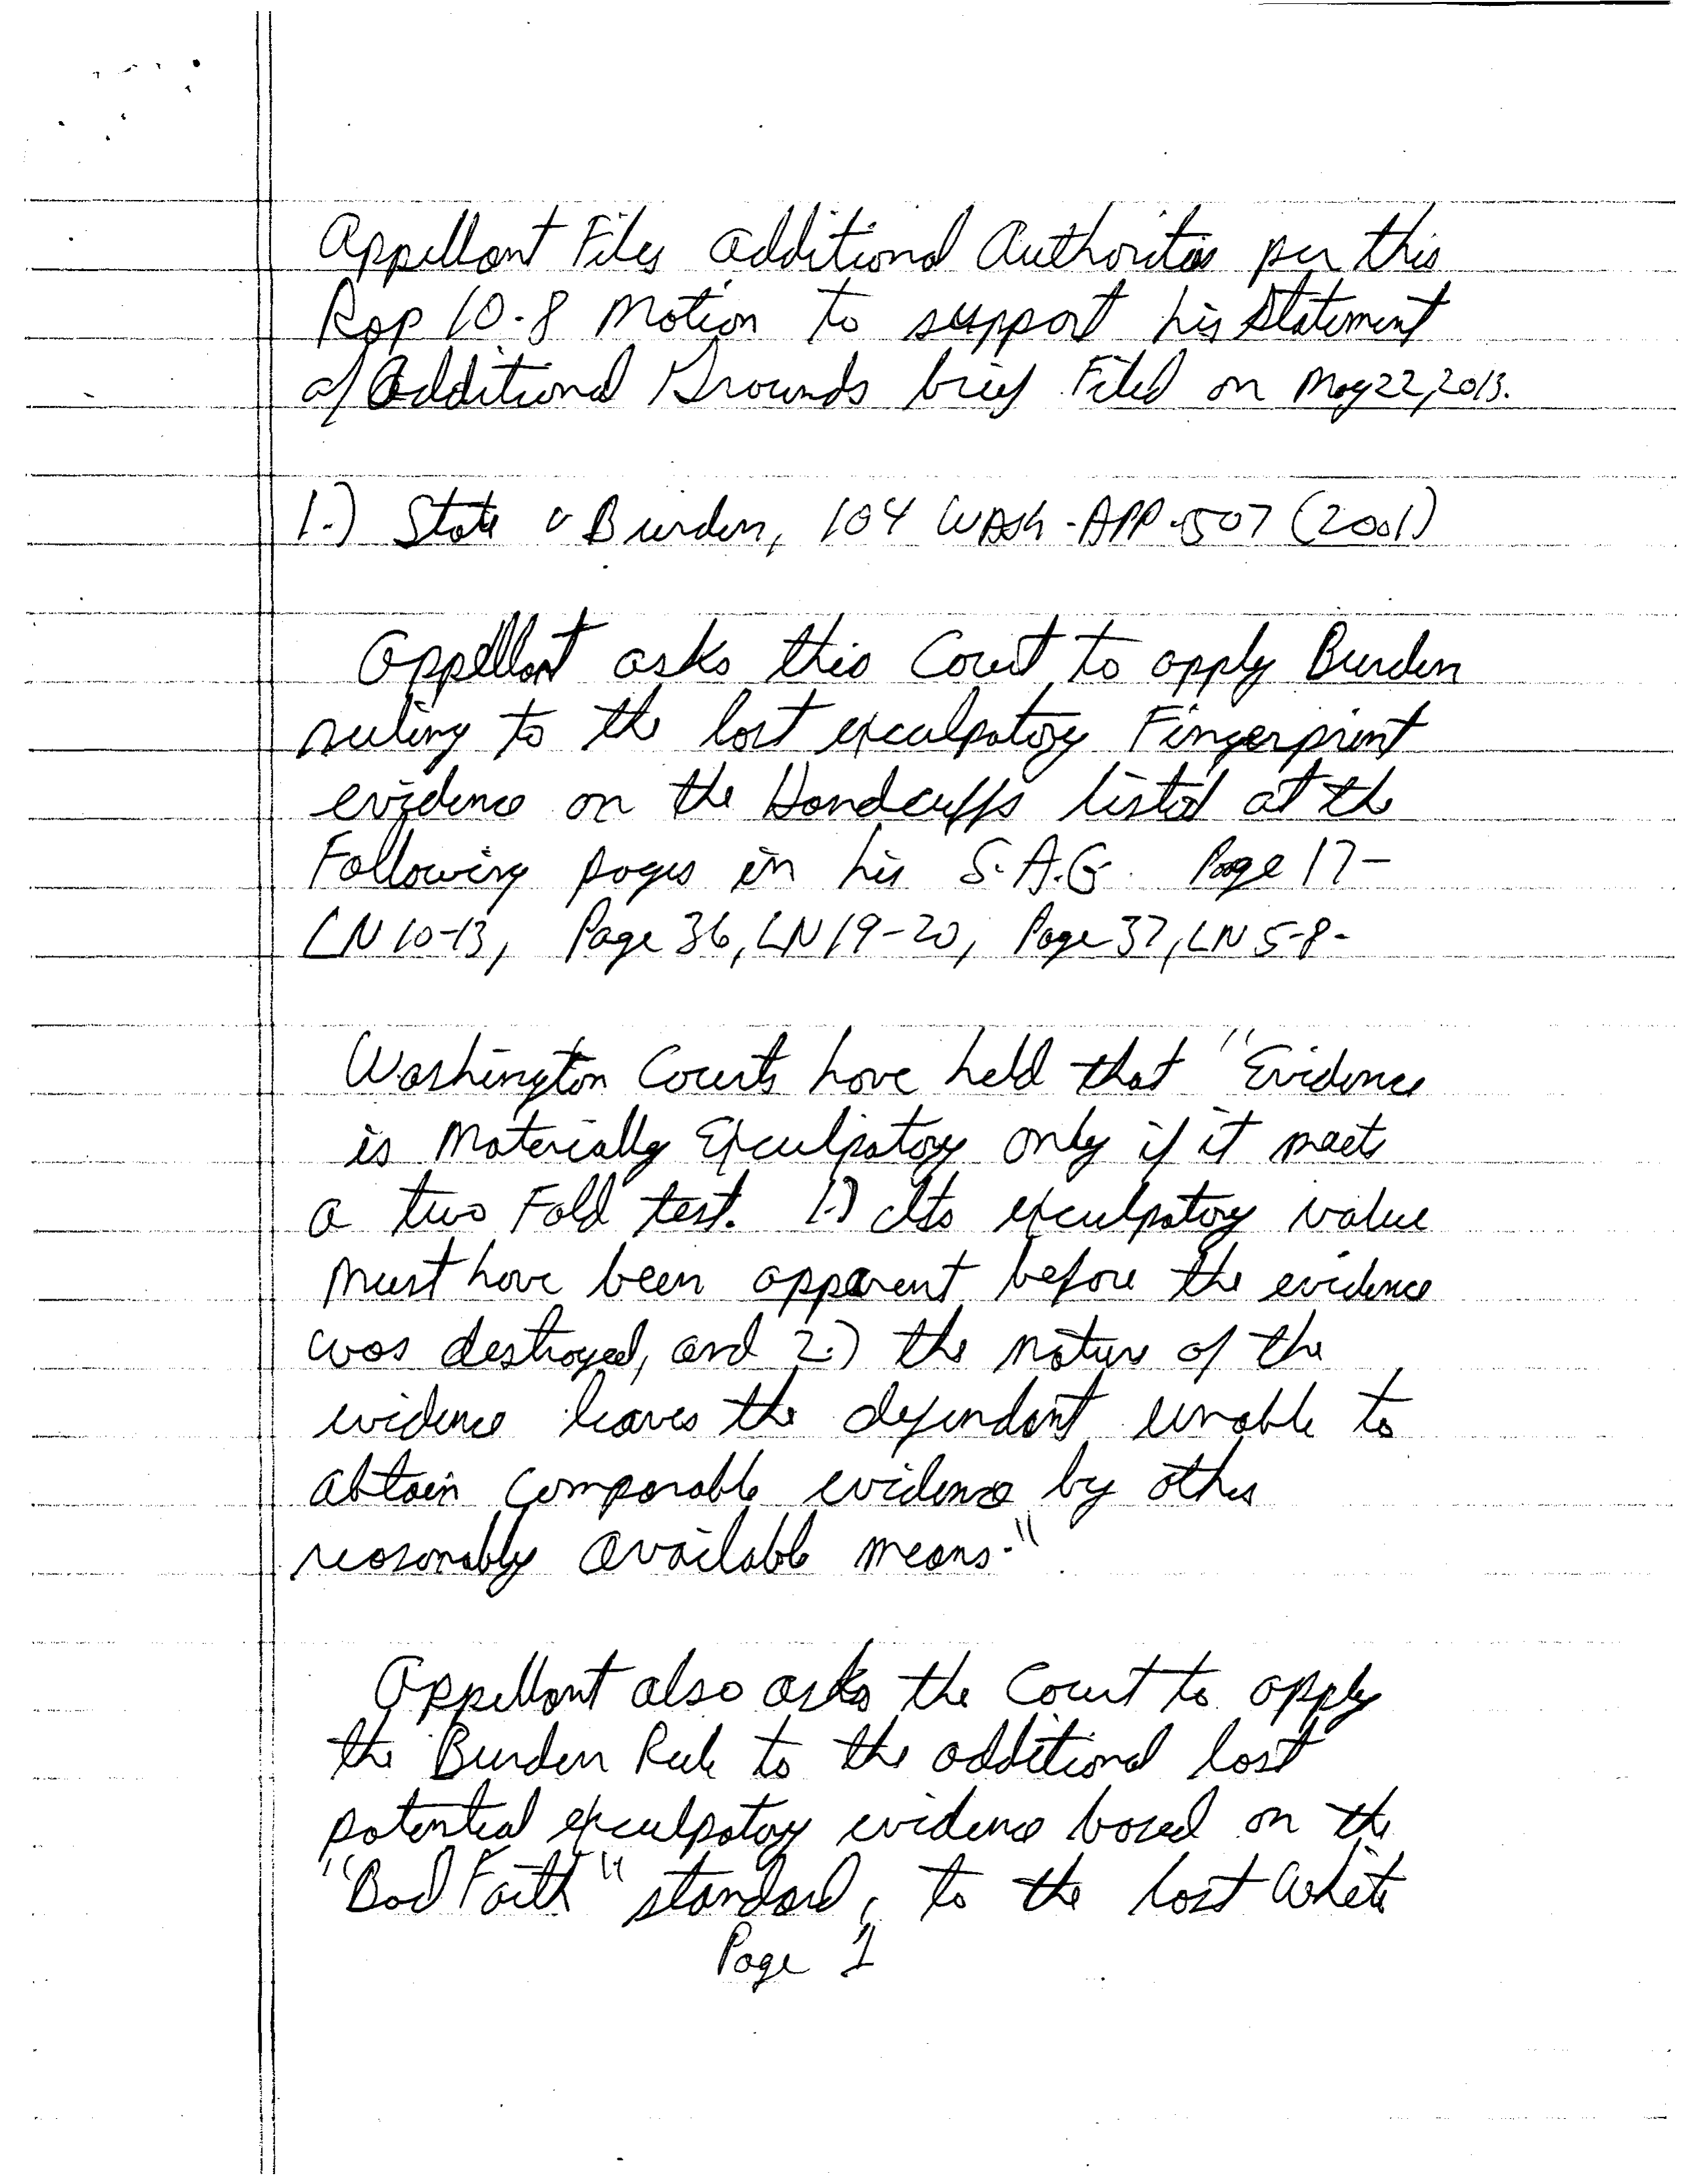 Appellant Files additional Authorities per this
Rap 10.8 Motion to support his Statement
of Additional Grounds brief Filed on May 22, 2013.
1.) State v Burden, 104 WASH. APP. 507 (2001)
Appellant asks this Court to apply Burden
ruling to the lost exculpatory Fingerprint
evidence on the Handcuffs listed at the
Following pages in his S.A.G. Page 17-
LN 10-13, Page 36, LN 19-20, Page 37, LN 5-8.
Washington Courts have held that "Evidence
is Materially Exculpatory only if it meets
a two Fold test. 1.) Its exculpatory value
must have been apparent before the evidence
was destroyed, and 2.) the nature of the
evidence leaves the defendant unable to
obtain comparable evidence by other
reasonably available means."
Appellant also asks the Court to apply
the Burden Rule to the additional lost
potential exculpatory evidence based on the
"Bad Faith" standard, to the lost White
Page 1